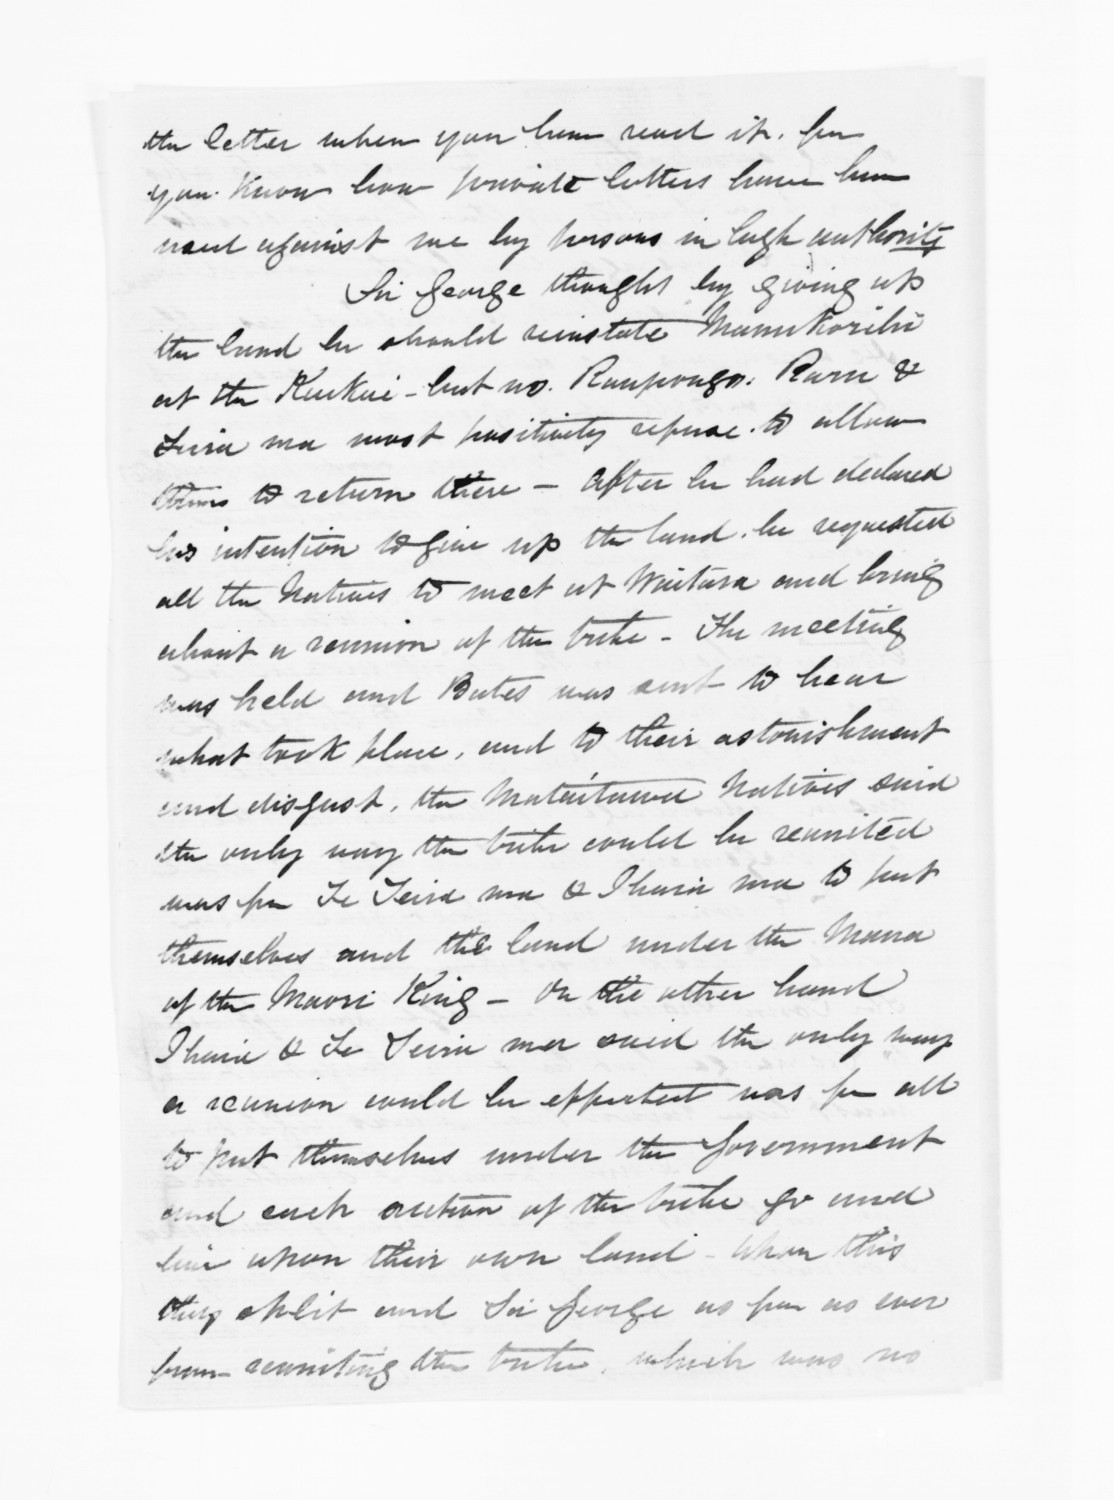 the letter when you have read it. for
you know how private letters have been
used against me by persons in high authority
Sir George thought by giving up
the land he should reinstate Manukorihi
at the Kuikui - but no. Raupongo. Raru &
Teira ma most positively refuse to allow
them to return there - After he had declared
his intention to give up the land. he requested
all the Natives to meet at Waitara and bring
about a reunion of the tribe - The meeting
was held and Bates was sent to hear
what took place, and to their astonishment
and disgust, the Mataitawa Natives said
the only way the tribe could be reunited
was for Te Teira ma & Ihaia ma to put
themselves and the land under the Mana
of the Maori King - On the other hand
Ihaia & Te Teira ma said the only way
a reunion could be effected was for all
to put themselves under the Government
and each section of the tribe go and
live upon their own land - Upon this
they split and Sir George as far as ever
from reuniting the tribe, which was no